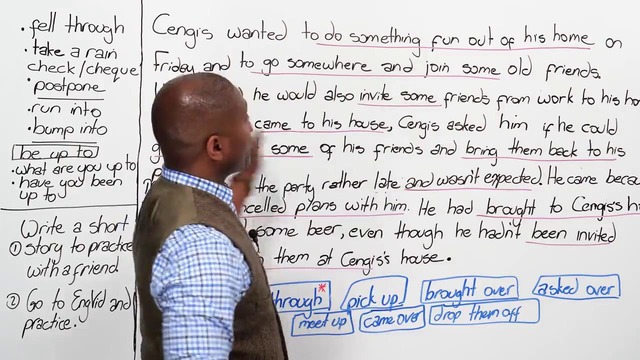 fell through
take a rain
check/cheque
postpone
run into
bump into
be up to
what are you up to
have you been
up to
Write a short
① story to practice
with a friend
② Go to EngVid and
practice.
Cengis wanted to do something fun out of his home on
Friday and to go somewhere and join some old friends.
he would also invite some friends from work to his
came to his house, Cengis asked him if he could
some of his friends and bring them back to his
the party rather late and wasn't expected. He came
plans with him. He had brought to Cengis's
some beer, even though he hadn't been invited
them at Cengis's house.
through* pick up brought over asked over
meet up came over drop them off